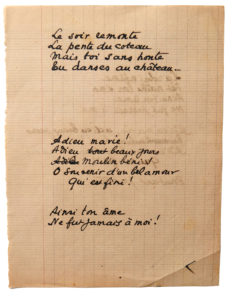 Le soir remonte
La pente du coteau
Mais toi sans honte
Tu danses au château...
Adieu marie!
Adieu tout beaux jours
moulin bénis
O souvenir d'un bel amour
Qui est fini!
Ainsi ton âme
Ne fut jamais à moi!